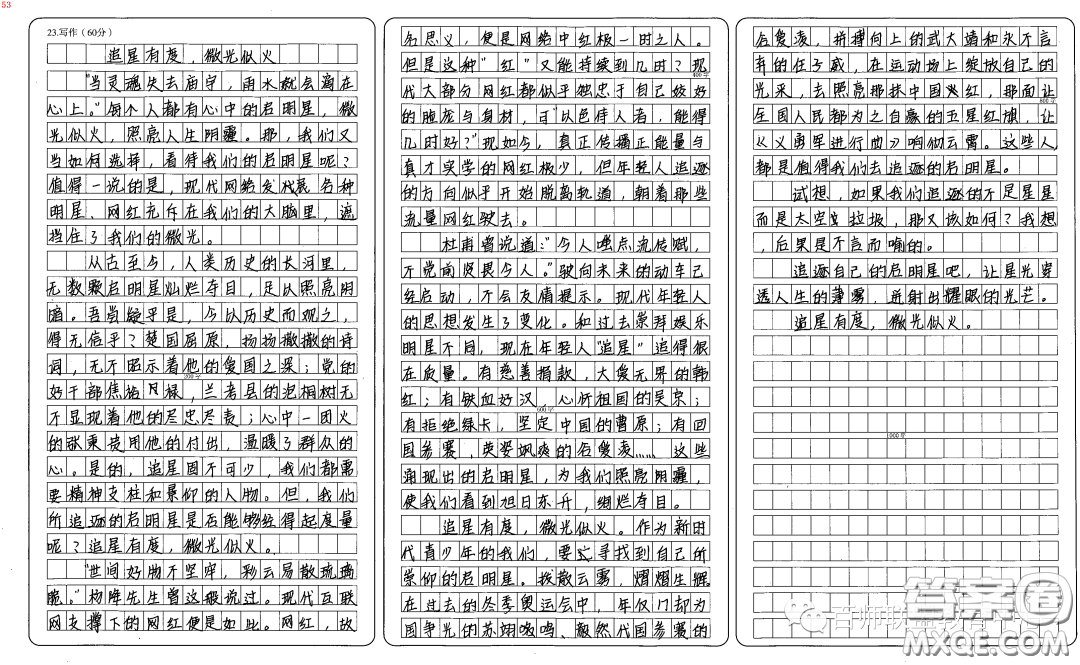 53
23.写作（60分）
追星有度，微光似火
"当灵魂失去庙宇，雨水就会滴在
心上。"每个人都有心中的启明星，微
光似火，照亮人生阴霾。那，我们又
当如何选择，看待我们的启明星呢？
值得一说的是，现代网络发展，各种
明星、网红充斥在我们的大脑里，遮
挡住了我们的微光。
从古至今，人类历史的长河里，
无数颗启明星灿烂夺目，足以照亮阴
暗。吾尝疑乎是，今以历史而观之，
得无信乎？楚国屈原，扬扬撒撒的诗
词，无不昭示着他的爱国之深；党的
好干部焦裕禄，兰考县的泡桐树无
200字
不显现着他的尽忠尽责；心中一团火
的张秉贵用他的付出，温暖了群众的
心。是的，追星固不可少，我们都需
要精神支柱和景仰的人物。但，我们
所追逐的启明星是否能够经得起度量
呢？追星有度，微光似火。
"世间好物不坚牢，彩云易散琉璃
脆。"杨绛先生曾这般说过。现代互联
网支撑下的网红便是如此。网红，故
名思义，便是网络中红极一时之人。
但是这种"红"又能持续到几时？现
400字
代大部分网红都似乎独忠于自己姣好
的脸庞与身材，可"以色侍人者，能得
几时好？"现如今，真正传播正能量与
真才实学的网红极少，但年轻人追逐
的方向似乎开始脱离轨道，朝着那些
流量网红驶去。
杜甫曾说道："今人嗤点流传赋，
不觉前贤畏今人。"驶向未来的动车已
经启动，不会友情提示。现代年轻人
的思想发生了变化。和过去崇拜娱乐
明星不同，现在年轻人"追星"追得很
在质量。有慈善捐款，大爱无界的韩
红；有铁血好汉，心怀祖国的吴京；
600字
有拒绝绿卡，坚定中国的曹原；有回
国参赛，英姿飒爽的谷爱凌……这些
涌现出的启明星，为我们照亮阴霾，
使我们看到旭日东升，绚烂夺目。
追星有度，微光似火。作为新时
代青少年的我们，要寻找到自己所
崇仰的启明星。拨散云雾，熠熠生辉
在过去的冬季奥运会中，年仅17却为
国争光的苏翊鸣、毅然代国参赛的
谷爱凌，拼搏向上的武大靖和永不言
弃的任子威，在运动场上绽放自己的
光采，去照亮那抹中国红，那面让
800字
全国人民都为之自豪的五星红旗，让
《义勇军进行曲》响彻云霄。这些人
都是值得我们去追逐的启明星。
试想，如果我们追逐的不是星星
而是太空垃圾，那又该如何？我想
，后果是不言而喻的。
追逐自己的启明星吧，让星光穿
透人生的薄雾，迸射出耀眼的光芒。
追星有度，微光似火。
1000字
答案圈
MXQE.COM